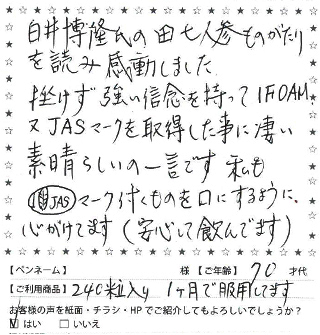 白井博隆氏の田七人参ものがたり
を読み感動しました
挫けず強い信念を持ってIFOAM.
又JASマークを取得した事に凄い
素晴らしいの一言です 私も
JASマーク付くものを口にするように、
心がけてます(安心して飲んでます)
【ペンネーム】 様【ご年齢】70才代
【ご利用商品】240粒入り 1ヶ月で服用してます
お客様の声を紙面・チラシ・HPでご紹介してもよろしいでしょうか?
はい □いいえ